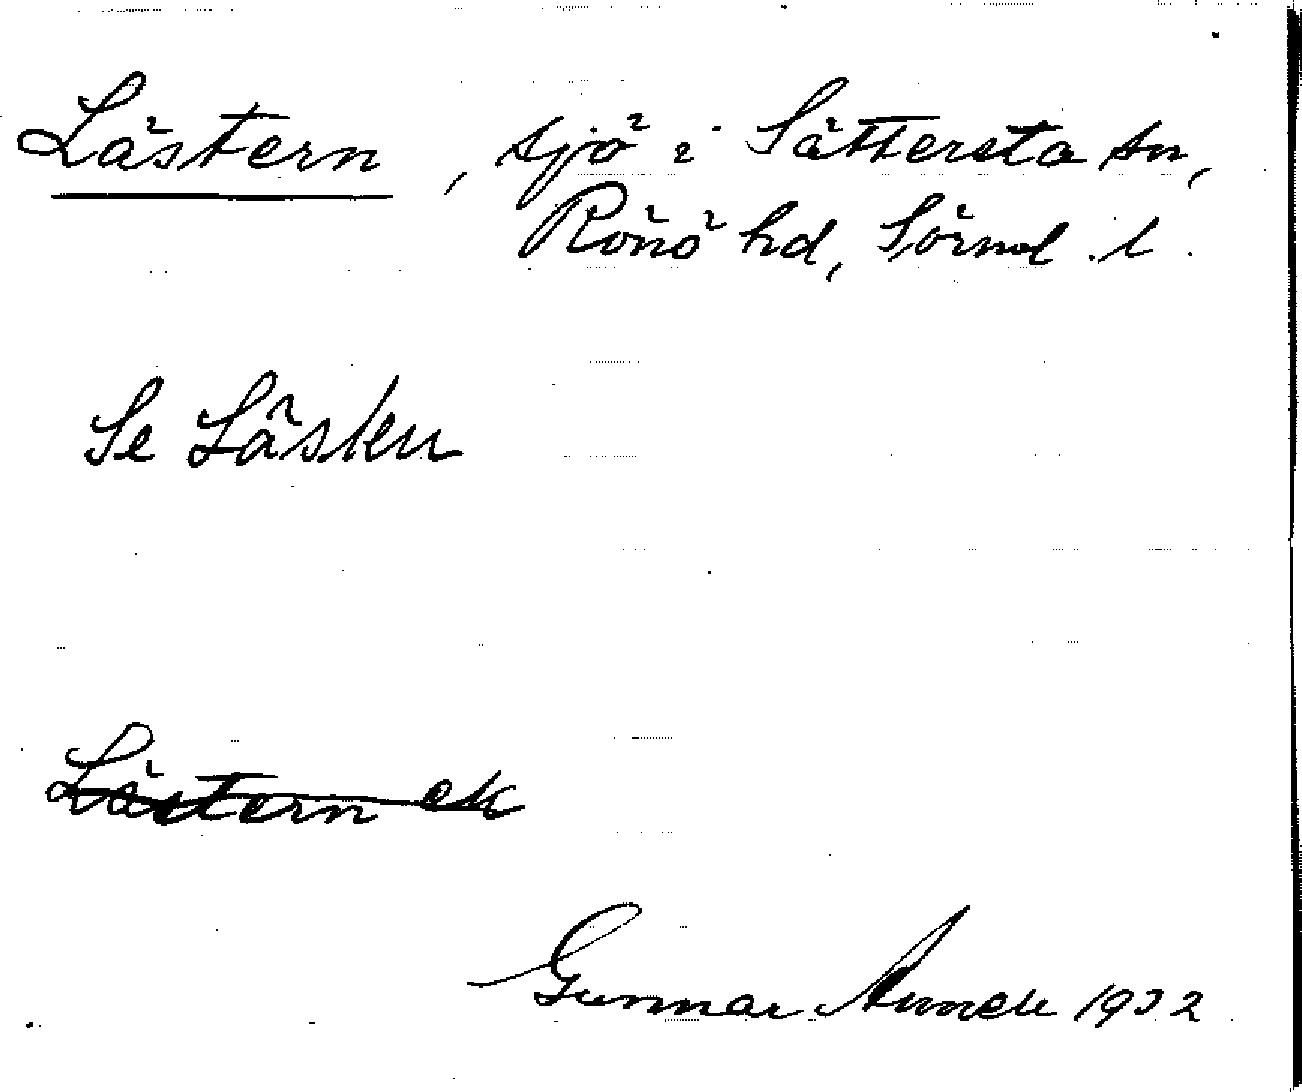 Lästern, sjö i Sättersta sn,
Rönö hd, Sörml. l.
Se Lästen
Lästern ek
Gunnar 1932